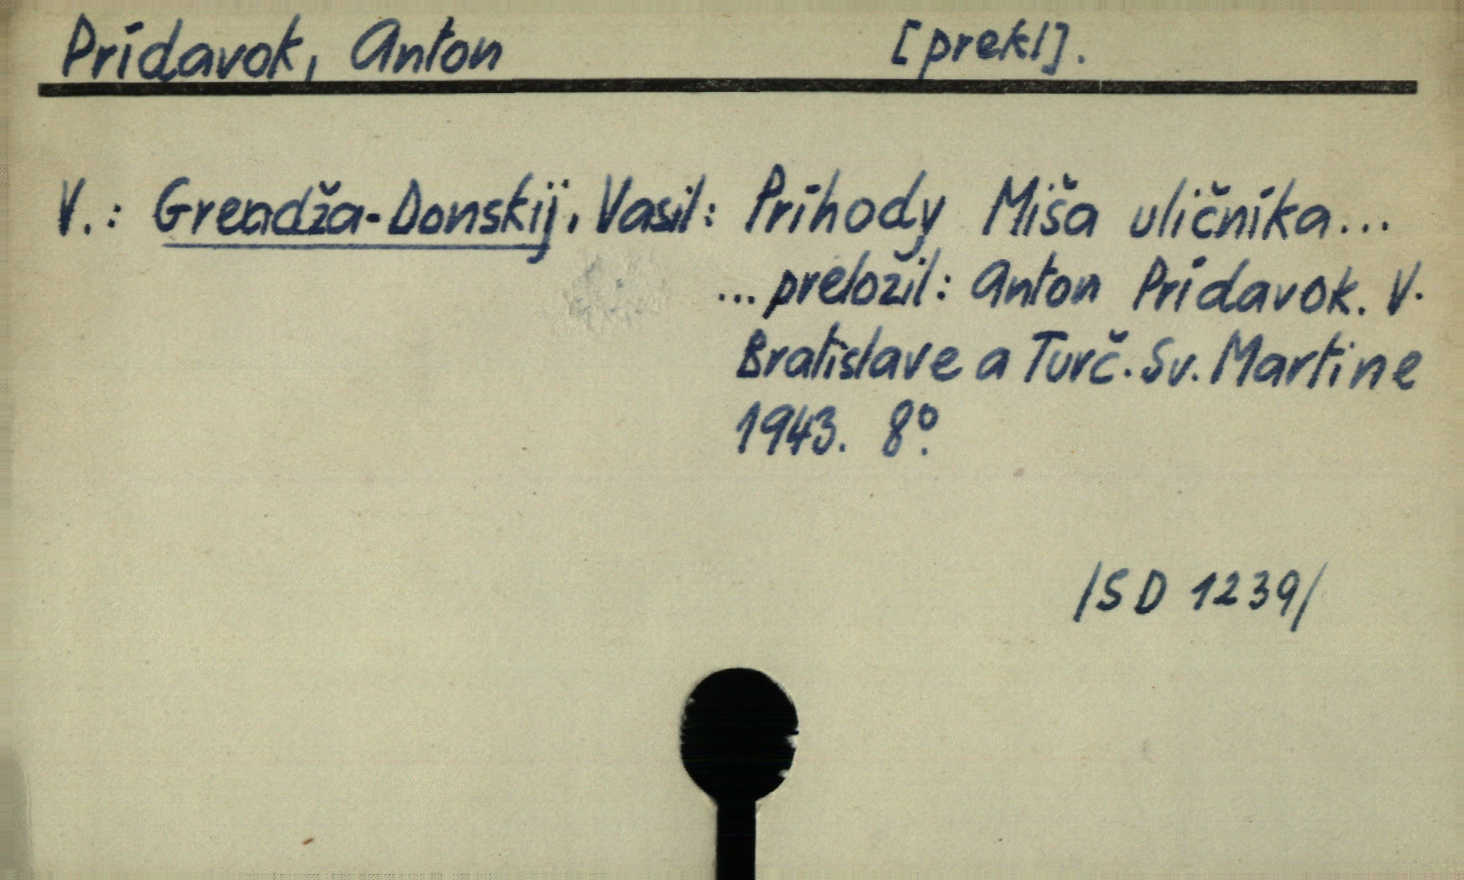 Prídavok, Anton [prekl].
V.: Grendža-Donskij, Vasil: Príhody Miša uličníka...
...preložil: Anton Prídavok. V.
Bratislave a Turč. Sv. Martine
1943. 8°.
/SD 1239/